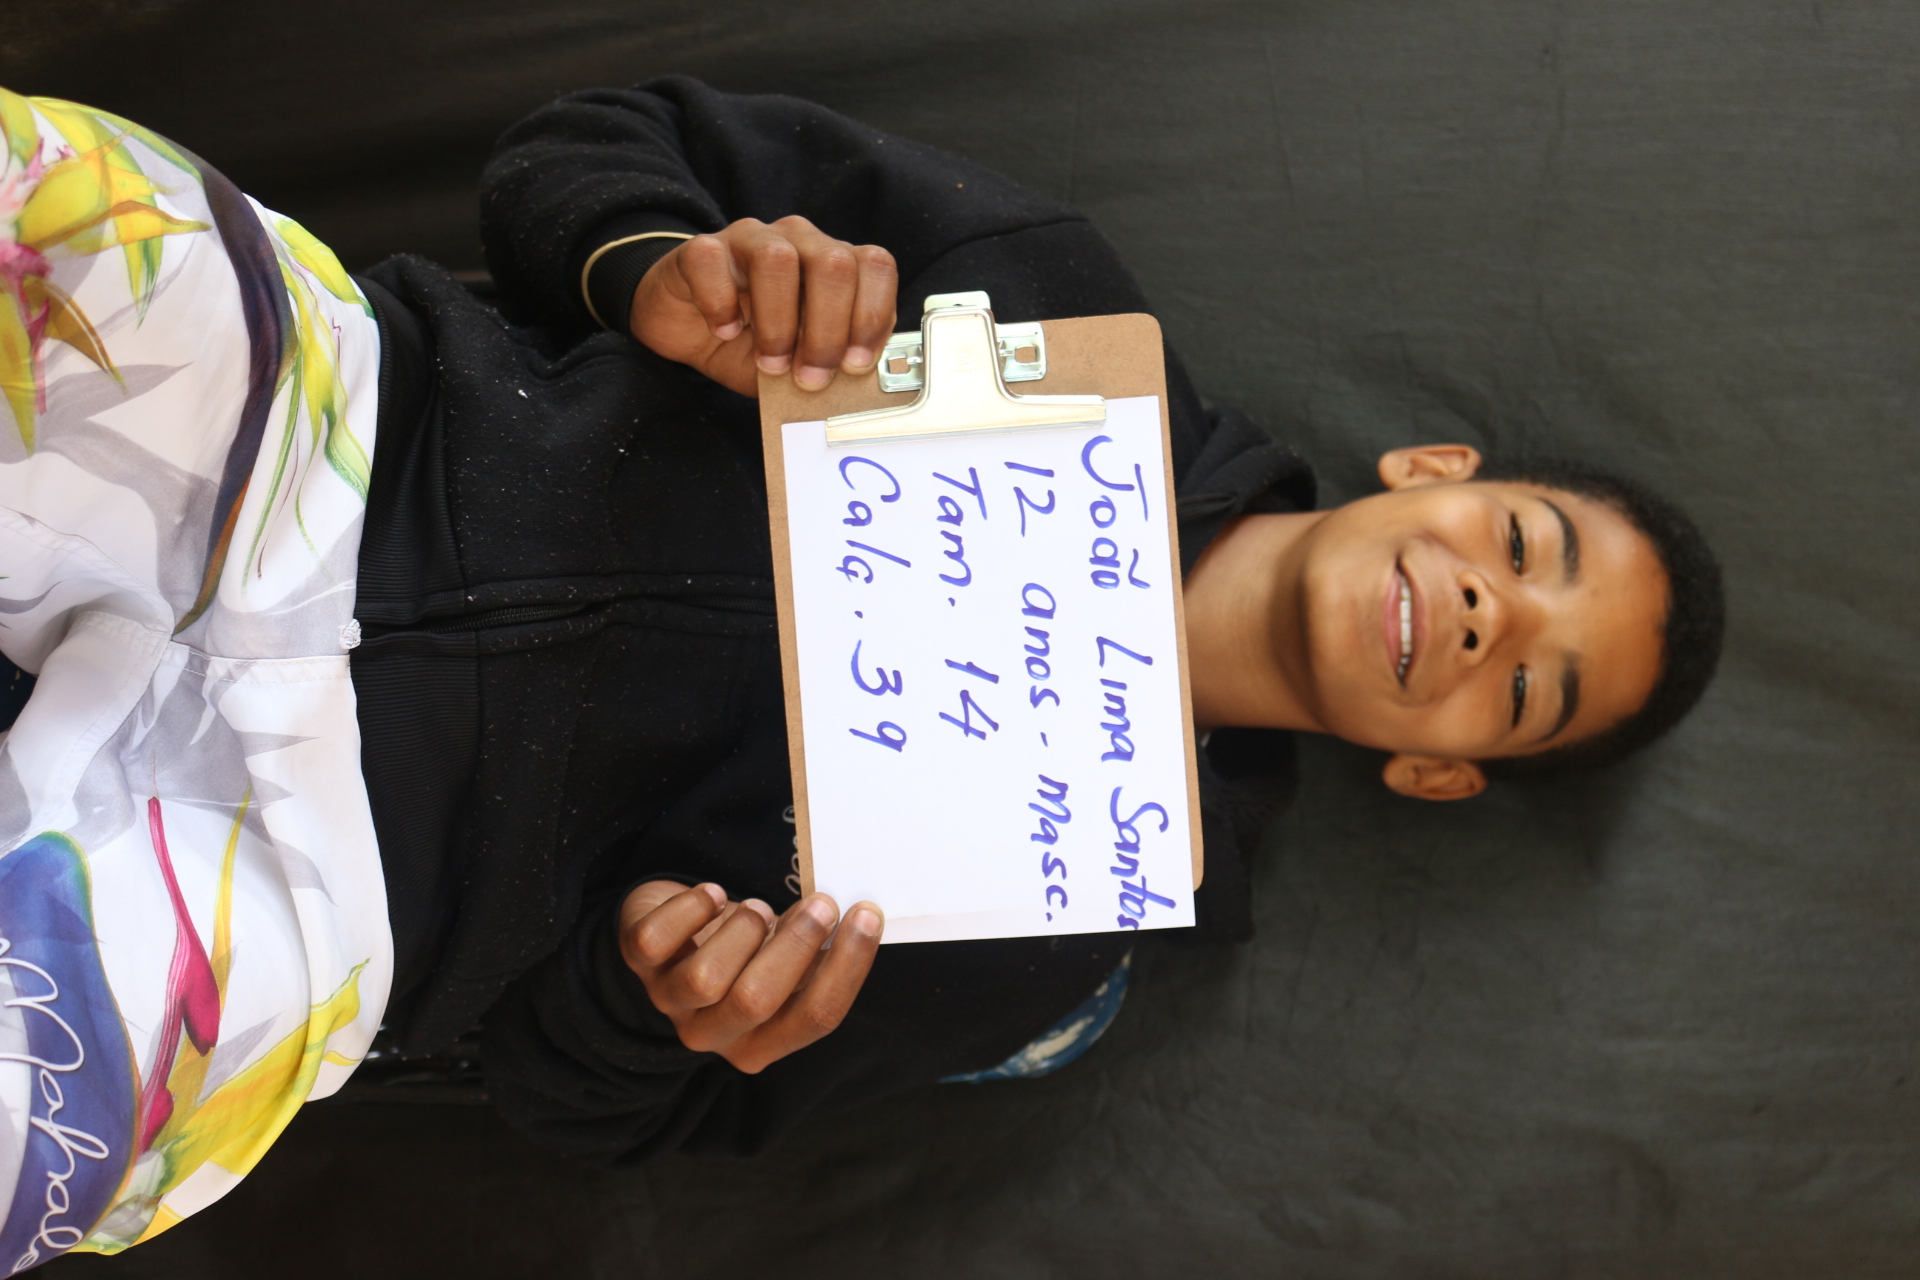 João Lima Santos
12 anos - Masc.
Tam. 14
Calç. 39
Mahalo